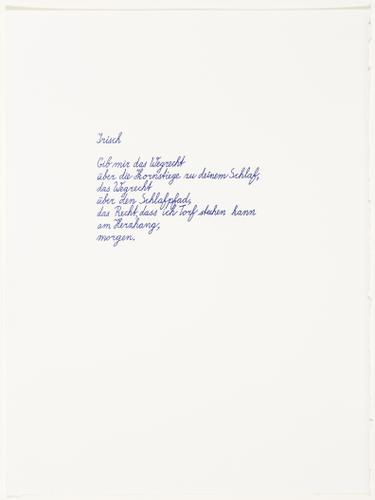 Irisch
Gib mir das Wegrecht
über die Kornstiege zu deinem Schlaf,
das Wegrecht
über den Schlafpfad,
das Recht, dass ich Torf stechen kann
am Herzhang,
morgen.